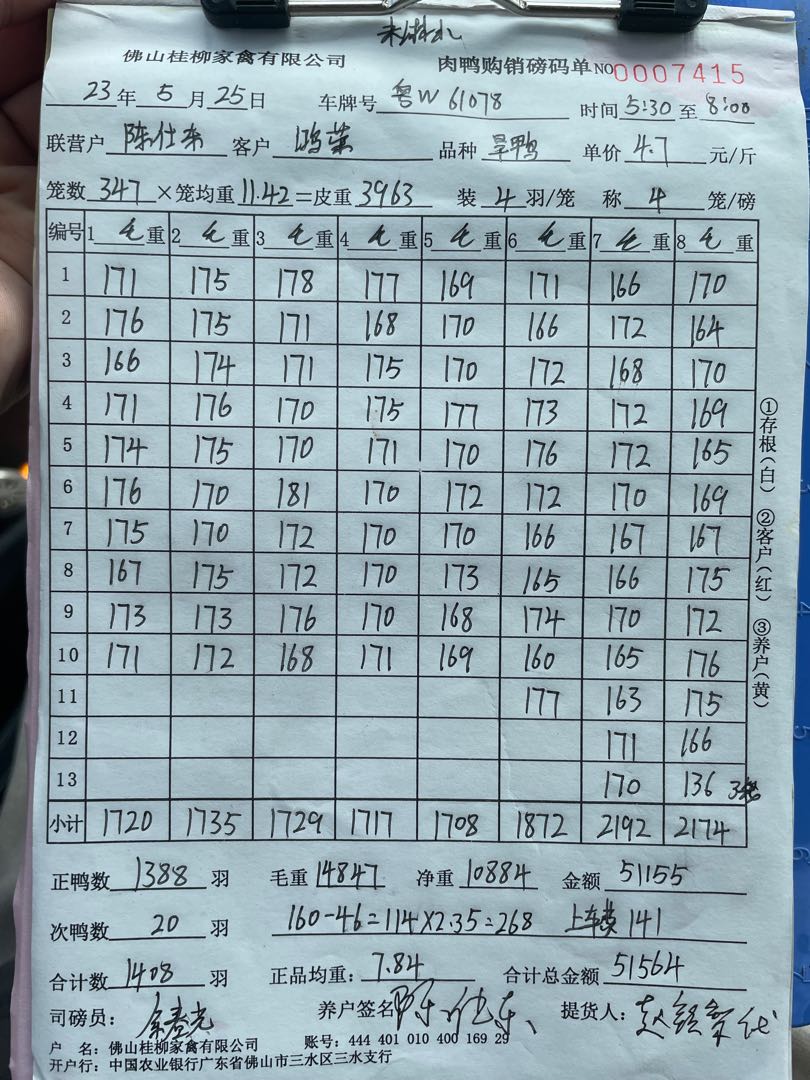 佛山桂柳家禽有限公司 肉鸭购销磅码单NO0007415
23年5月25日 车牌号 粤W61078 时间5:30至8:00
联营户 陈仕东 客户 鸿荣 品种 旱鸭 单价 4.7 元/斤
笼数 347 ×笼均重 11.42 =皮重 3963 装 4 羽/笼 称 4 笼/磅
编号 1毛重 2毛重 3毛重 4毛重 5毛重 6毛重 7毛重 8毛重
1 171 175 178 177 169 171 166 170
2 176 175 171 168 170 166 172 164
3 166 174 171 175 170 172 168 170
4 171 176 170 175 177 173 172 169
5 174 175 170 171 170 176 172 165
6 176 170 181 170 172 172 170 169
7 175 170 172 170 170 166 167 167
8 167 175 172 170 173 165 166 175
9 173 173 176 170 168 174 170 172
10 171 172 168 171 169 160 165 176
11 177 163 175
12 171 166
13 170 136 3笼
小计 1720 1735 1729 1717 1708 1872 2192 2174
①存根(白) ②客户(红) ③养户(黄)
正鸭数 1388 羽 毛重 14847 净重 10884 金额 51155
次鸭数 20 羽 160-46=114×2.35=268 上车费 141
合计数 1408 羽 正品均重: 7.84 合计总金额 51564
司磅员: 养户签名 陈仕东 提货人:
户 名: 佛山桂柳家禽有限公司 账号: 444 401 010 400 169 29
开户行: 中国农业银行广东省佛山市三水区三水支行